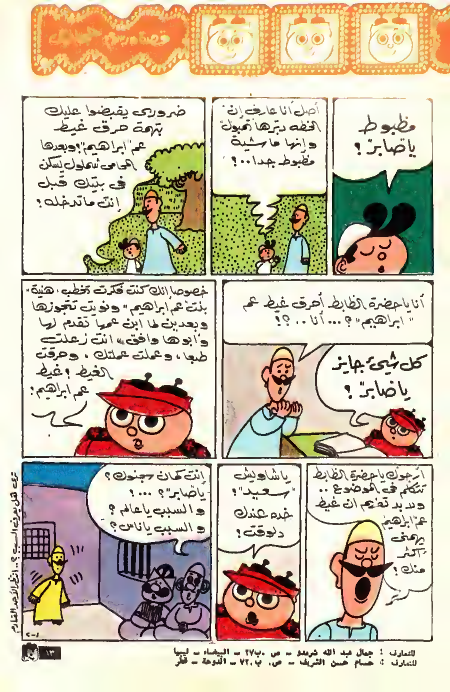 مظبوط
يا صابر ؟
أصل أنا عارف إن
الخطه دبرها شمبول
وإنها ماشية
مظبوط جدا ..؟
ضرورى يقبضوا عليك
بتهمة حرق غيط
عم ابراهيم"! وبعدها
فى بيتك قبل
إنت ما تدخله ؟
أنا يا حضرة الظابط أحرق غيط عم
"ابراهيم" ؟ ... أنا ..؟؟
كل شئ جايز
يا صابر ؟
خصوصا إنك كنت فكرت تخطب "هنية"
بنت عم ابراهيم" ونويت تتجوزها
وبعدين لما ابن عمها تقدم لها
وأبوها وافق، انت زعلت
طبعا، وعملت عملتك، وحرقت
الغيط ! غيط
عم ابراهيم !
أرجوك يا حضرة الظابط
تتكلم فى الموضوع ..
ولا بد تفهم إن غيط
عم ابراهيم
يهمنى
أكتر
منك !
يا شاويش
"سعيد" !
خده عندك
دلوقت !
إنت كمان سجنوك ؟
يا صابر" ؟ ... !
والسبب يا عالم ؟
والسبب يا ناس ؟
للتعارف : جمال عبد الله شرمدو - ص .ب ٢٧ - البيضاء - ليبيا
للتعارف : حسام حسن الشريف - ص. ب .٧٢ - الدوحة - قطر
١٣